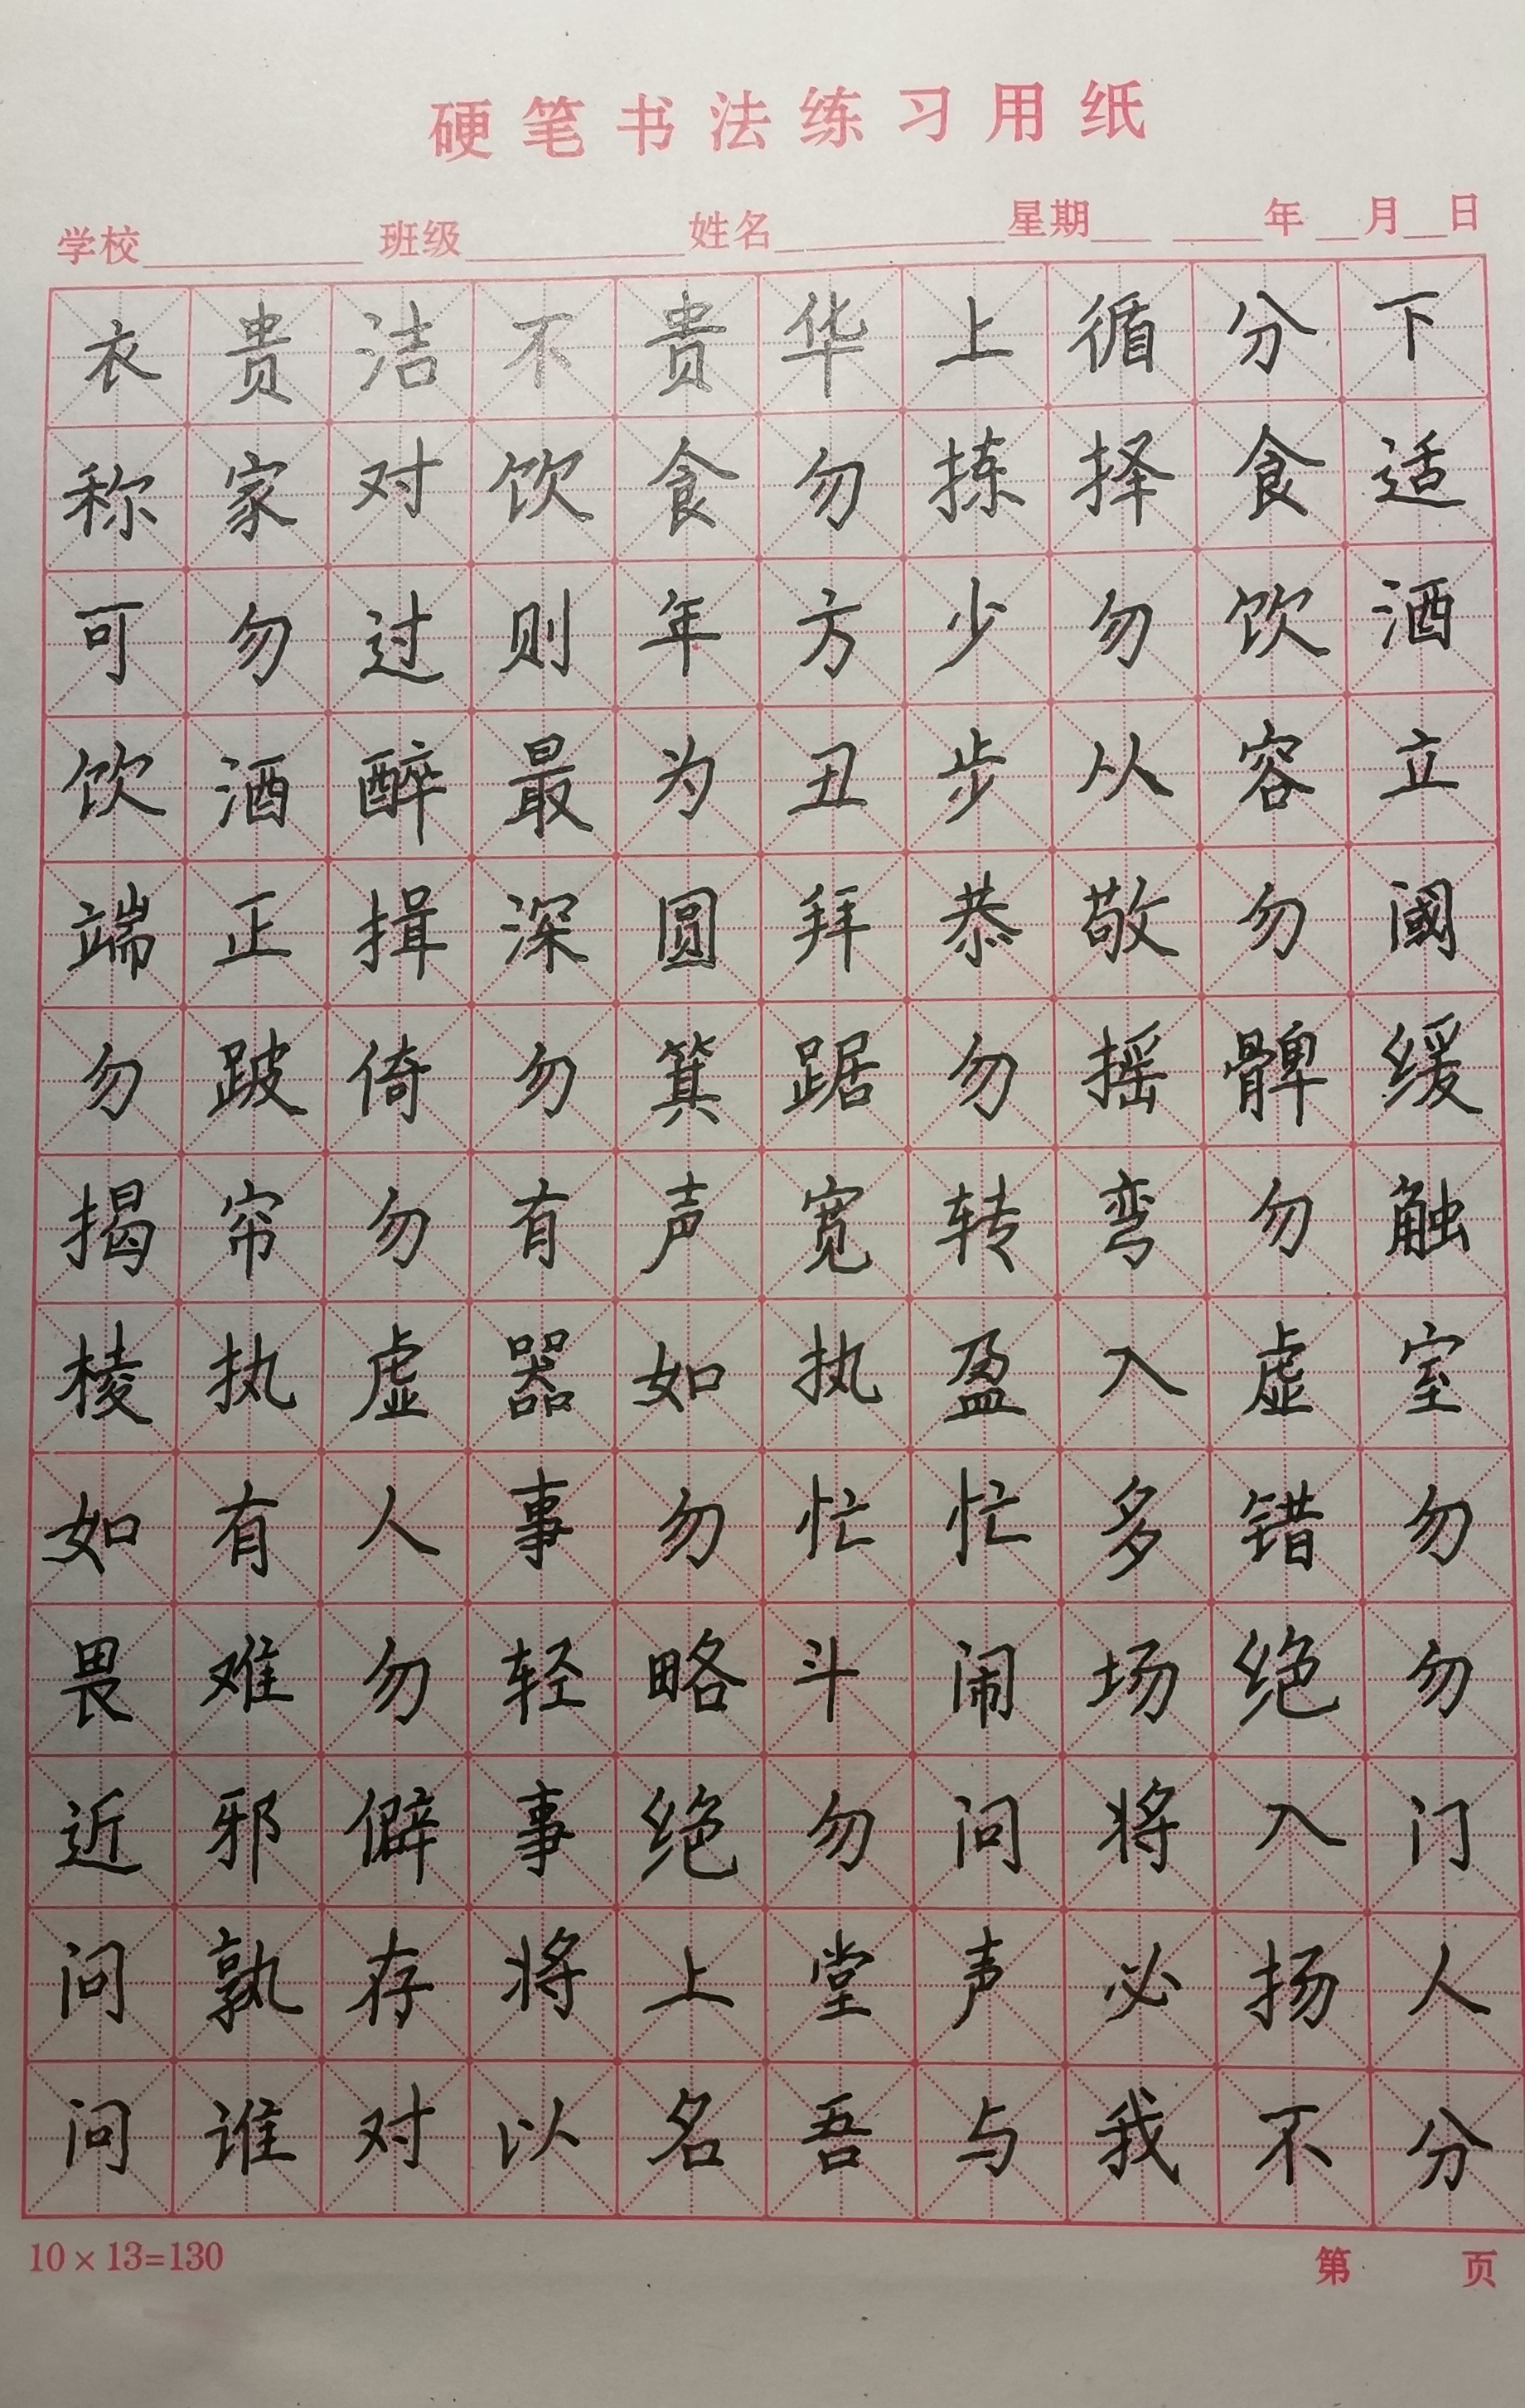 硬笔书法练习用纸
学校 班级 姓名 星期 年 月 日
衣贵洁不贵华上循分下
称家对饮食勿拣择食适
可勿过则年方少勿饮酒
饮酒醉最为丑步从容立
端正揖深圆拜恭敬勿阈
勿跛倚勿箕踞勿摇髀缓
揭帘勿有声宽转弯勿触
棱执虚器如执盈入虚室
如有人事勿忙忙多错勿
畏难勿轻略斗闹场绝勿
近邪僻事绝勿问将入门
问孰存将上堂声必扬人
问谁对以名吾与我不分
10×13=130 第 页